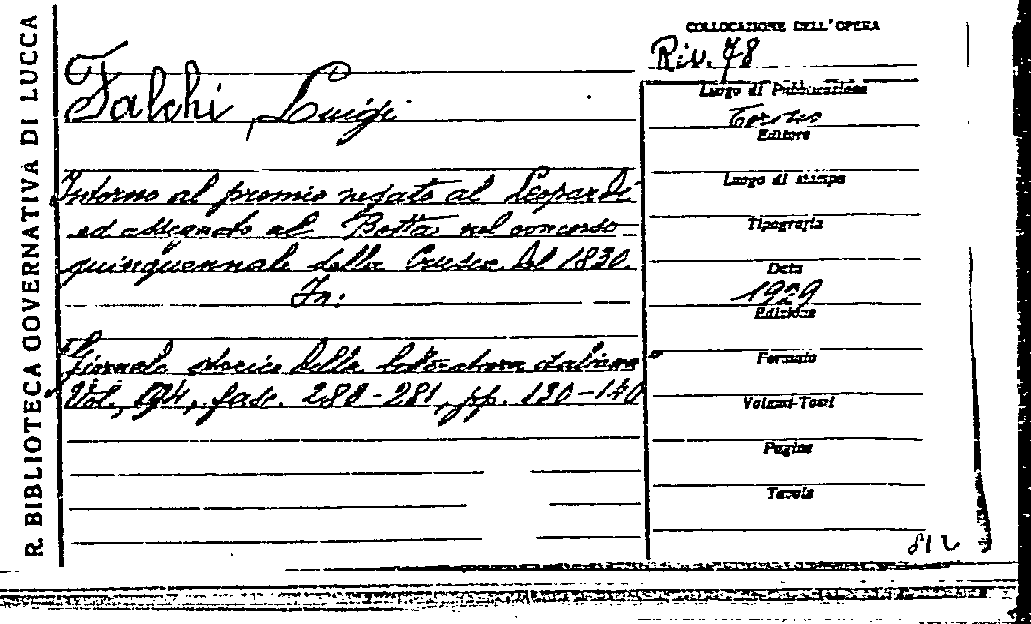 R. BIBLIOTECA GOVERNATIVA DI LUCCA
COLLOCAZIONE DELL'OPERA
Riv. 78
Falchi, Luigi
Intorno al premio negato al Leopardi
ed assegnato al Botta nel concorso
quinquennale della Crusca del 1830.
In:
"Giornale storico della letteratura italiana"
Vol. 94, fasc. 280-281, pp. 130-140
Luogo di Pubblicazione
Torino
Editore
Luogo di stampa
Tipografia
Data
1929
Edizione
Formato
Volumi-Tomi
Pagine
Tavole
812